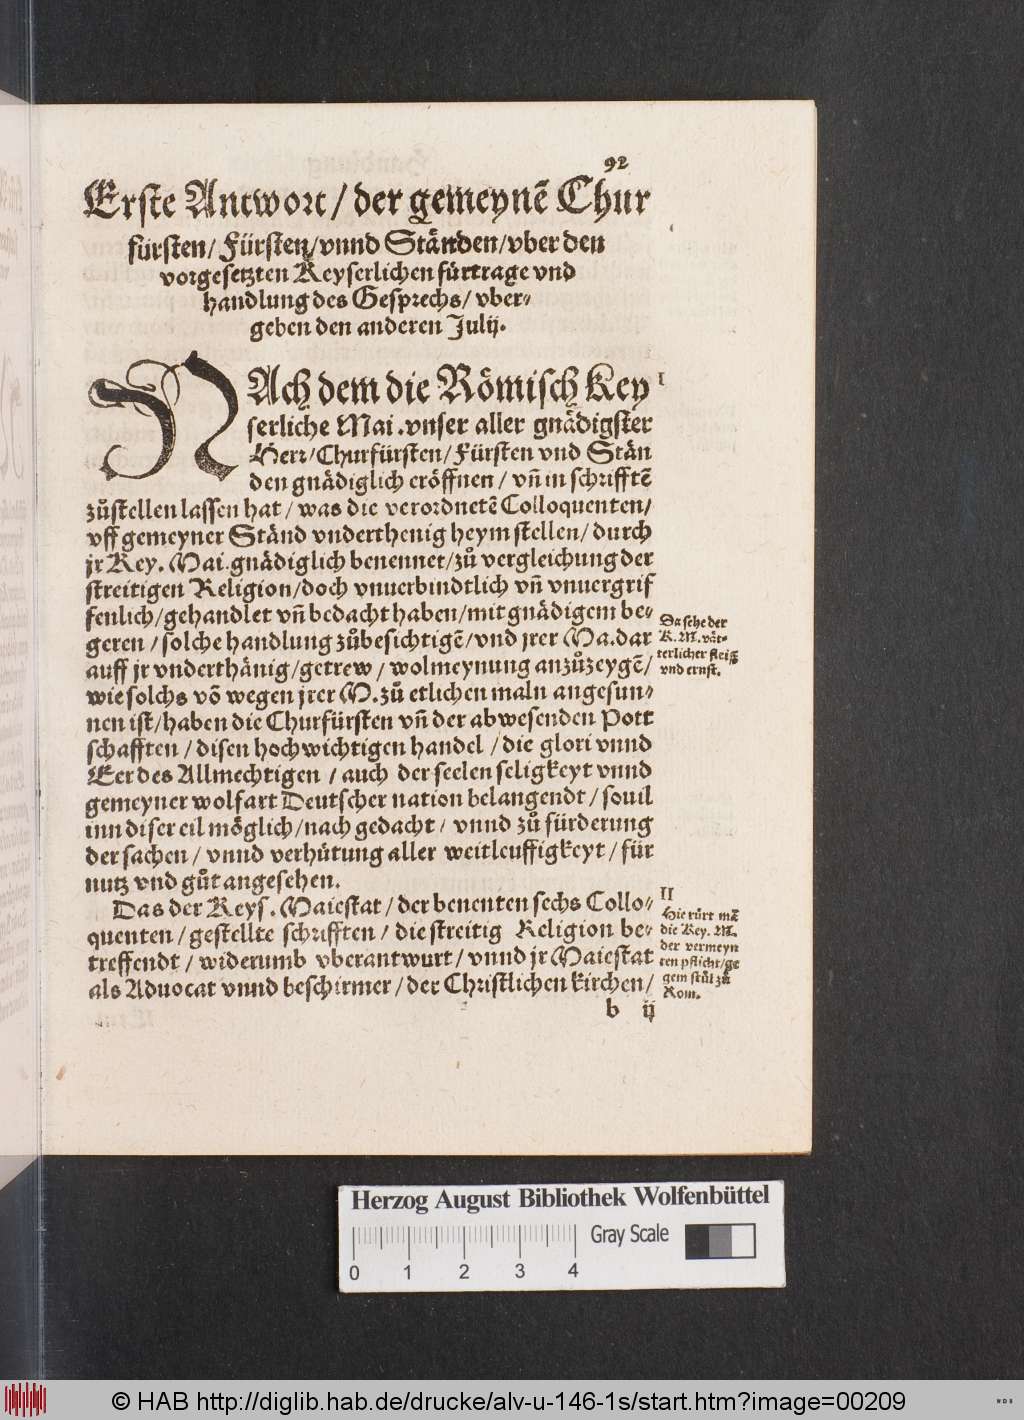 92
Erste Antwort/ der gemeynẽ Chur
fürsten/ Fürsten/ vnnd Ständen/ vber den
vorgesetzten Keyserlichen fürtrage vnd
handlung des Gesprechs/ vber-
geben den anderen Julij.
NAch dem die Römisch Key
serliche Mai. vnser aller gnädigster
Herr/ Churfürsten/ Fürsten vnd Stän
den gnädiglich eröffnen/ vñ in schrifftẽ
zůstellen lassen hat/ was die verordnetẽ Colloquenten/
vff gemeyner Ständ vnderthenig heym stellen/ durch
jr Key. Mai. gnädiglich benennet/ zů vergleichung der
streitigen Religion/ doch vnuerbindtlich vñ vnuergrif
fenlich/ gehandlet vñ bedacht haben/ mit gnädigem be-
geren/ solche handlung zůbesichtigẽ/ vnd jrer Ma. dar
auff jr vnderthänig/ getrew/ wolmeynung anzůzeygẽ/
wie solchs võ wegen jrer M. zů etlichen maln angesun-
nen ist/ haben die Churfürsten vñ der abwesenden Pott
schafften/ disen hochwichtigen handel/ die glori vnnd
Eer des Allmechtigen/ auch der seelen seligkeyt vnnd
gemeyner wolfart Deutscher nation belangendt/ souil
inn diser eil möglich/ nach gedacht/ vnnd zů fürderung
der sachen/ vnnd verhütung aller weitleuffigkeyt/ für
nutz vnd gůt angesehen.
Das der Keys. Maiestat/ der benenten sechs Collo-
quenten/ gestellte schrifften/ die streitig Religion be-
treffendt/ widerumb vberantwurt/ vnnd jr Maiestat
als Aduocat vnnd beschirmer/ der Christlichen kirchen/
b ij
I
Da sehe der
K. M. vät-
terlicher fleiß
vnd ernst.
II
Hie rürt mã
die Key. M.
der vermeyn
ten pflicht/ ge
gem stůl zů
Rom.
Herzog August Bibliothek Wolfenbüttel
Gray Scale
0 1 2 3 4
© HAB http://diglib.hab.de/drucke/alv-u-146-1s/start.htm?image=00209